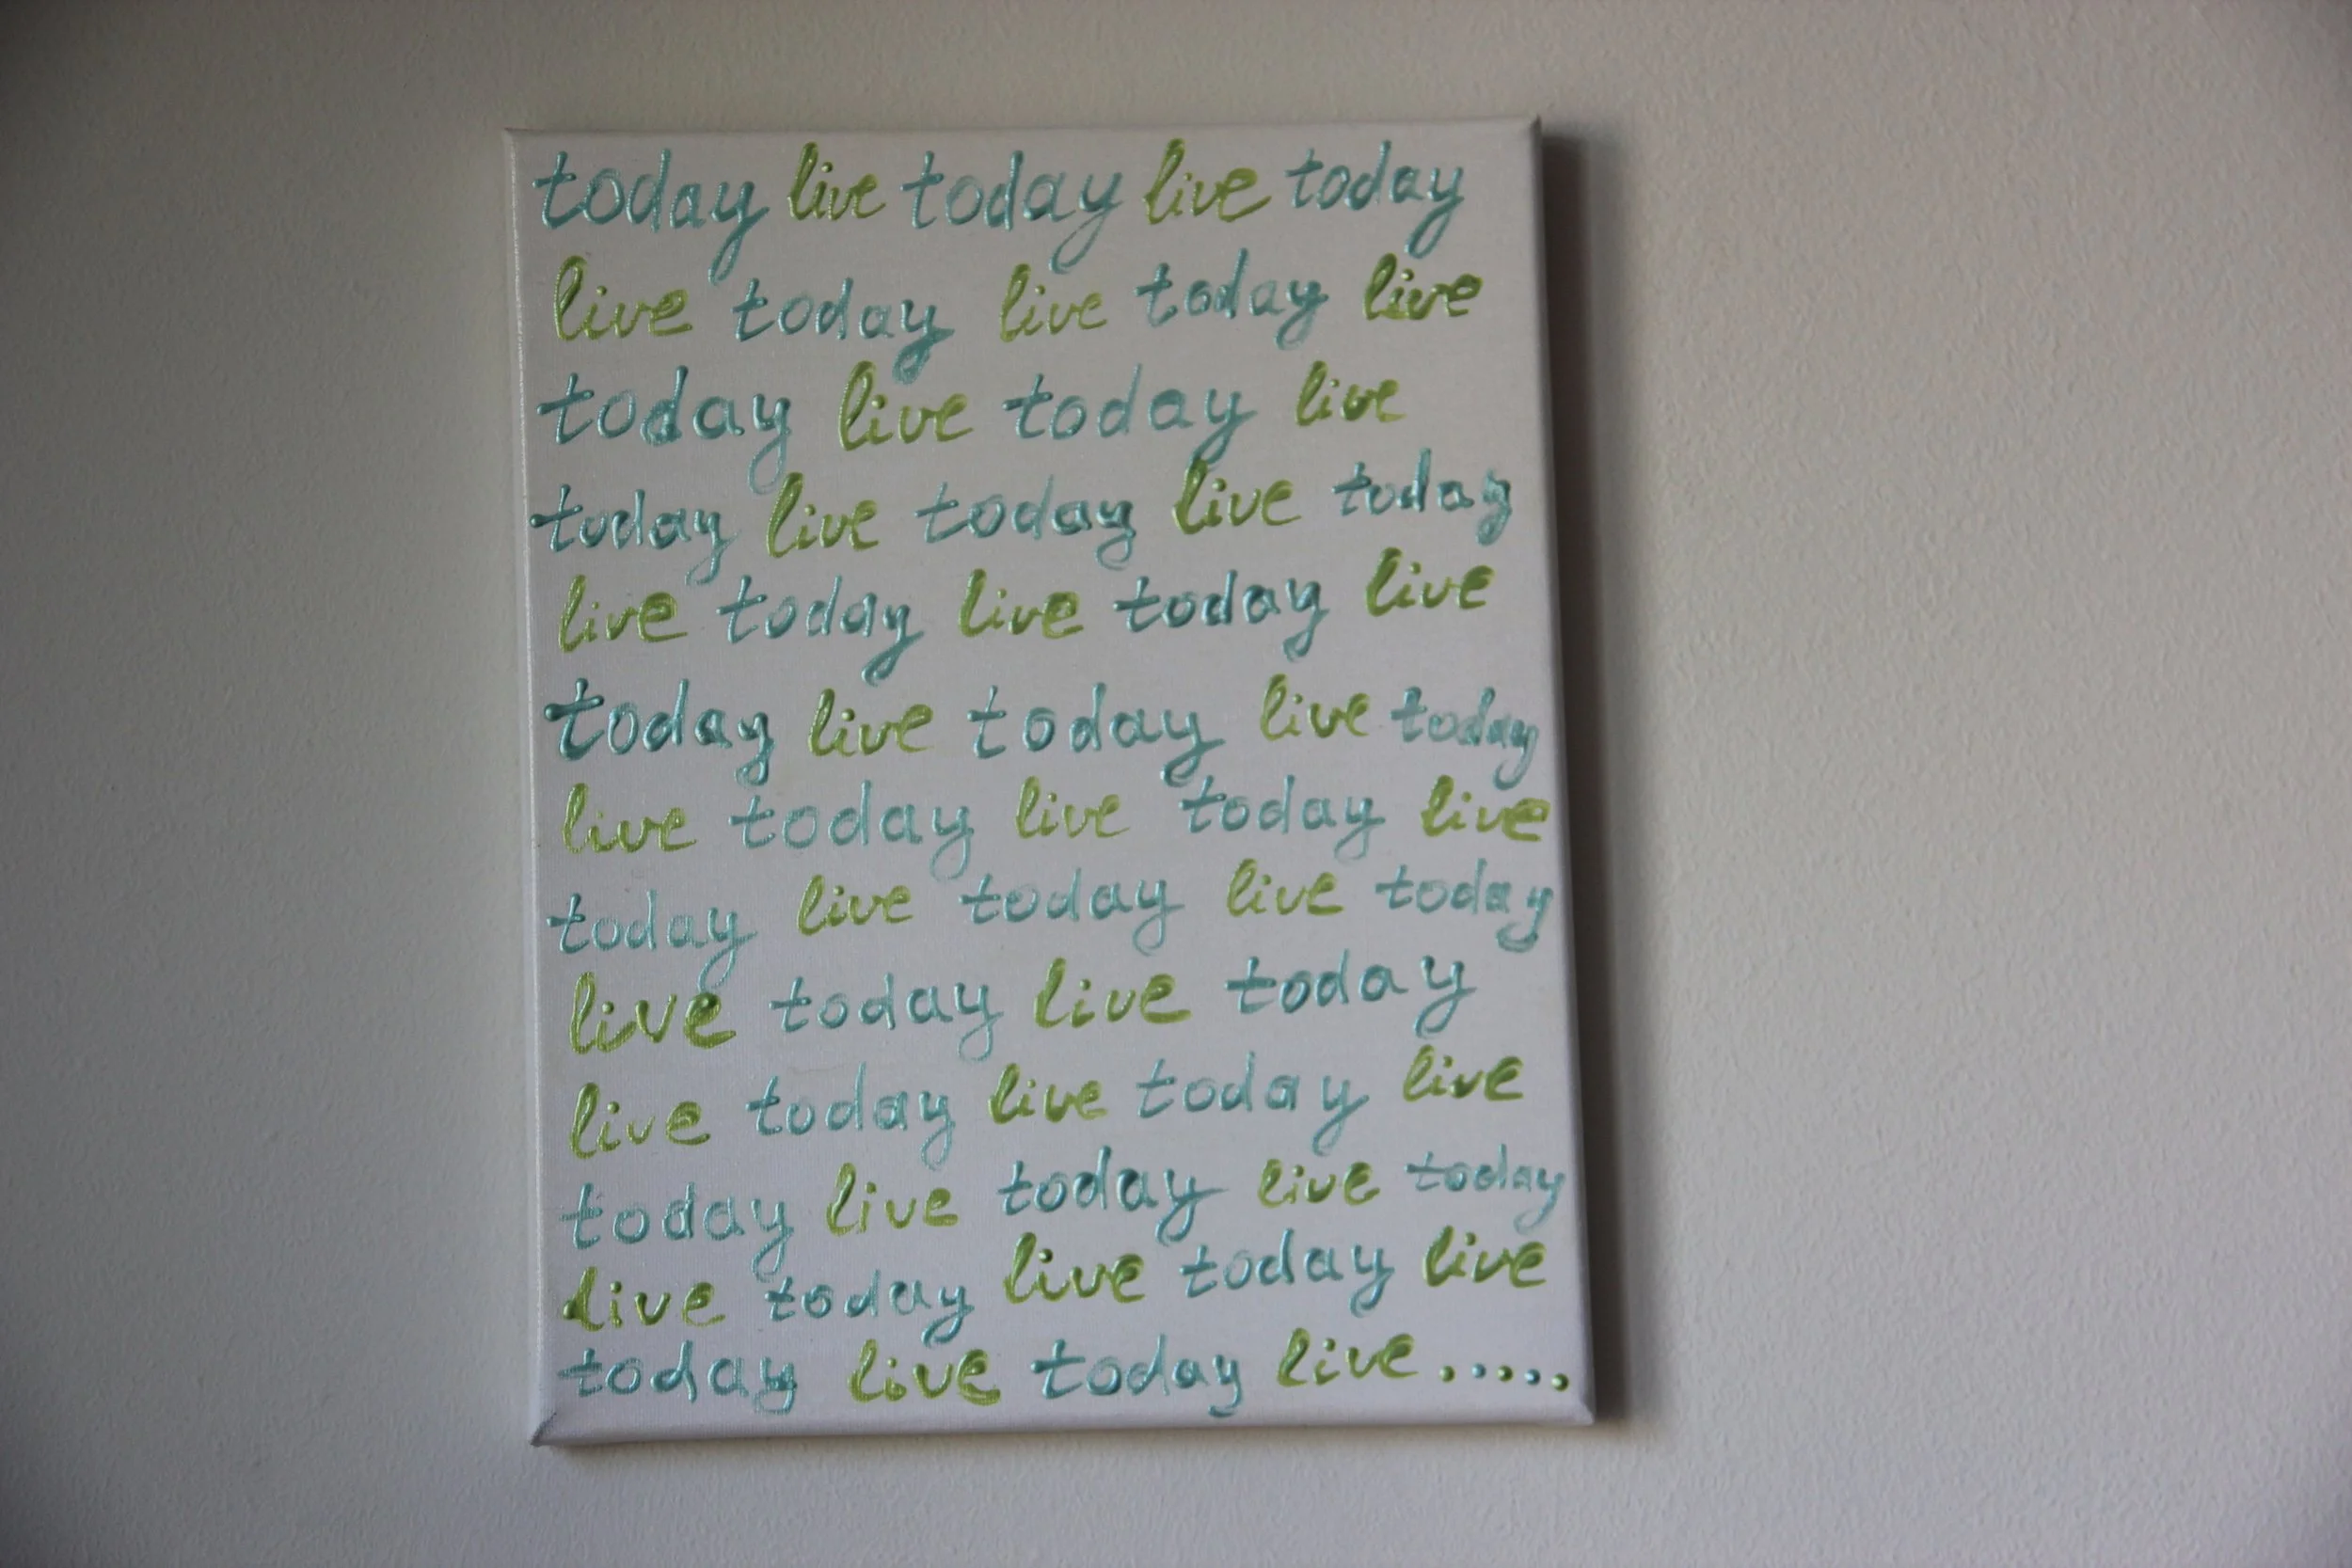 today live today live today
live today live today live
today live today live
today live today live today
live today live today live
today live today live today
live today live today live
today live today live today
live today live today
live today live today live
today live today live today
live today live today live
today live today live.....